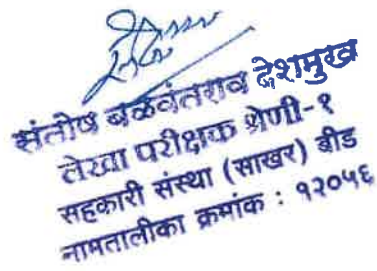 संतोष बळवंतराव देशमुख
लेखा परीक्षक श्रेणी-१
सहकारी संस्था (साखर) बीड
नामतालीका क्रमांक : १२०५६